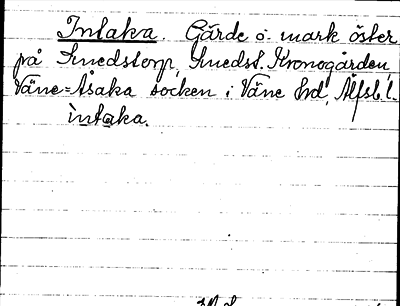 Intaka. Gärde o. mark öster
på Smedstorp, Smedst. Kronogården
Väne=Åsaka socken i Väne hrd, Älfsb. l.
intaka.